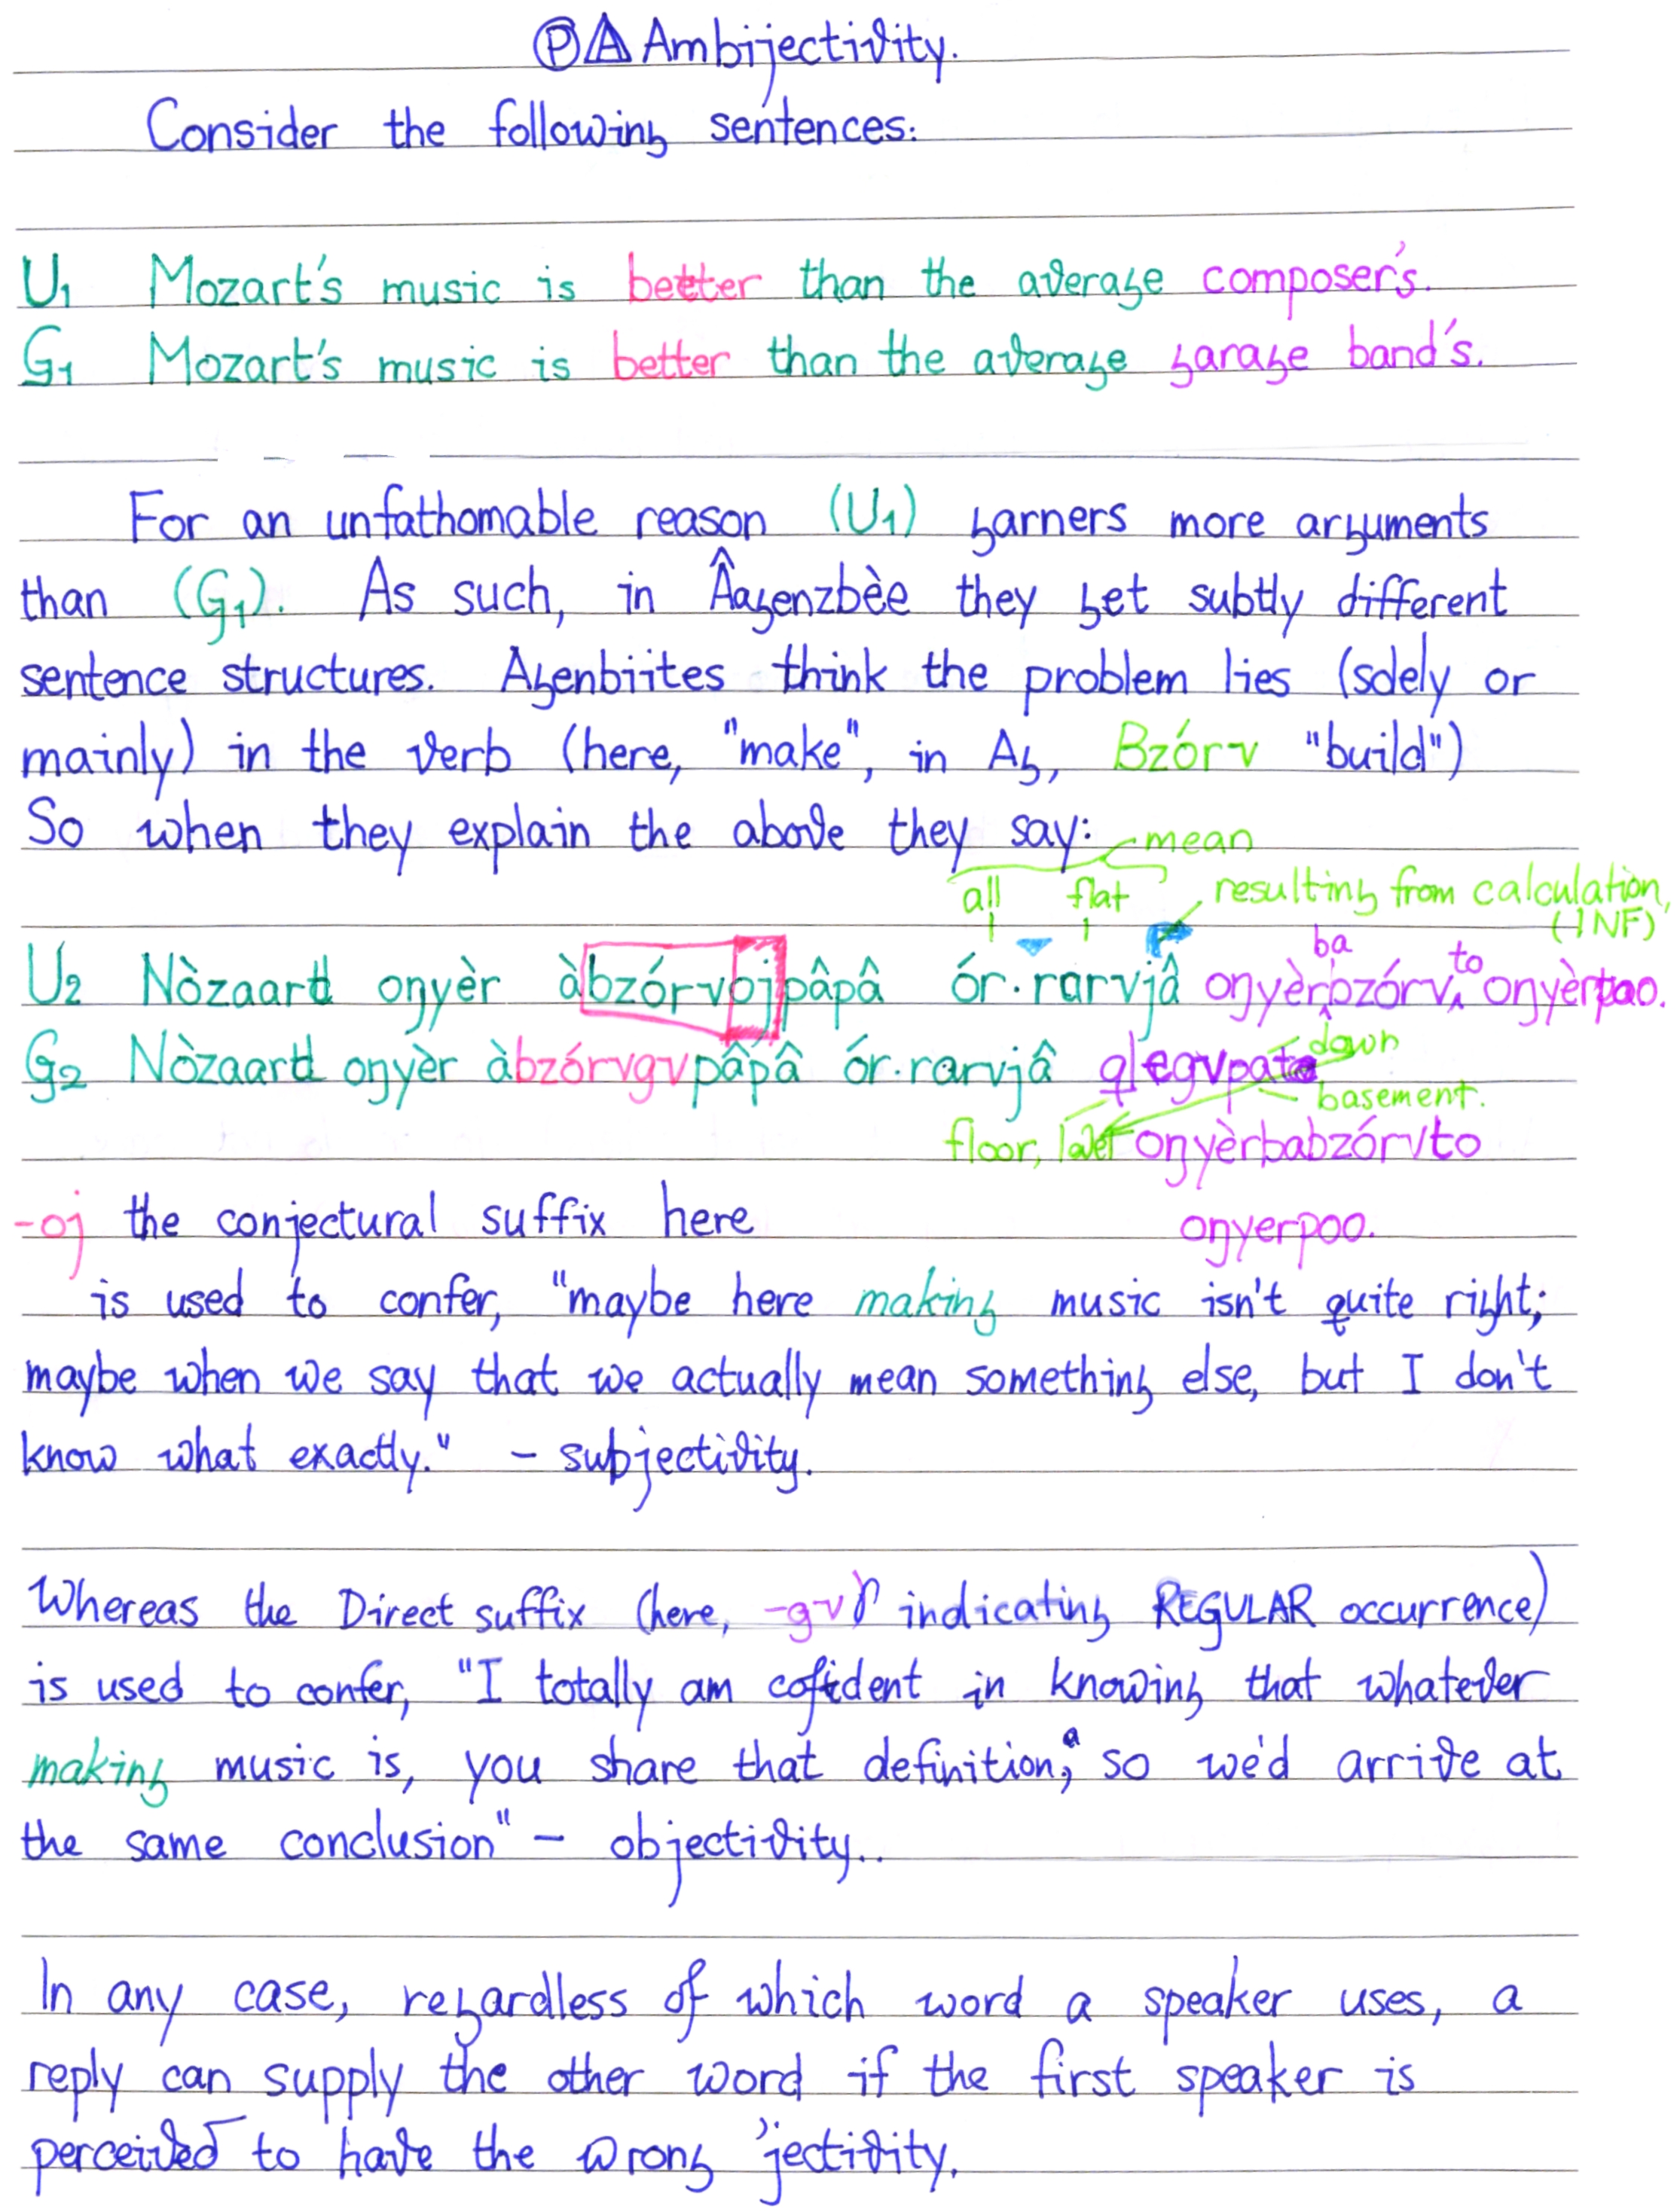 Ⓟ Ambijectivity.
Consider the following sentences:
U₁ Mozart's music is better than the average composer's.
G₁ Mozart's music is better than the average garage band's.
For an unfathomable reason (U₁) garners more arguments
than (G₁). As such, in Âagenzbèe they get subtly different
sentence structures. Agenbiites think the problem lies (solely or
mainly) in the verb (here, "make", in Ag, Bzórv "build")
So when they explain the above they say:
mean
all flat resulting from calculation,
(INF)
ba to
U₂ Nòzaard oŋyèr àbzórvojpâpâ ór.rarvjâ oŋyèrbzórv, oŋyèrpao.
down
G₂ Nòzaard oŋyèr àbzórvgvpâpâ ór.rarvjâ qlegvpata
basement.
floor, oŋyèrbabzórvto
-oj the conjectural suffix here oŋyerpoo.
is used to confer, "maybe here making music isn't quite right;
maybe when we say that we actually mean something else, but I don't
know what exactly." – subjectivity.
Whereas the Direct suffix (here, -gv indicating REGULAR occurrence)
is used to confer, "I totally am cofident in knowing that whatever
making music is, you share that definition, so we'd arrive at
the same conclusion" – objectivity..
In any case, regardless of which word a speaker uses, a
reply can supply the other word if the first speaker is
perceived to have the wrong 'jectivity.